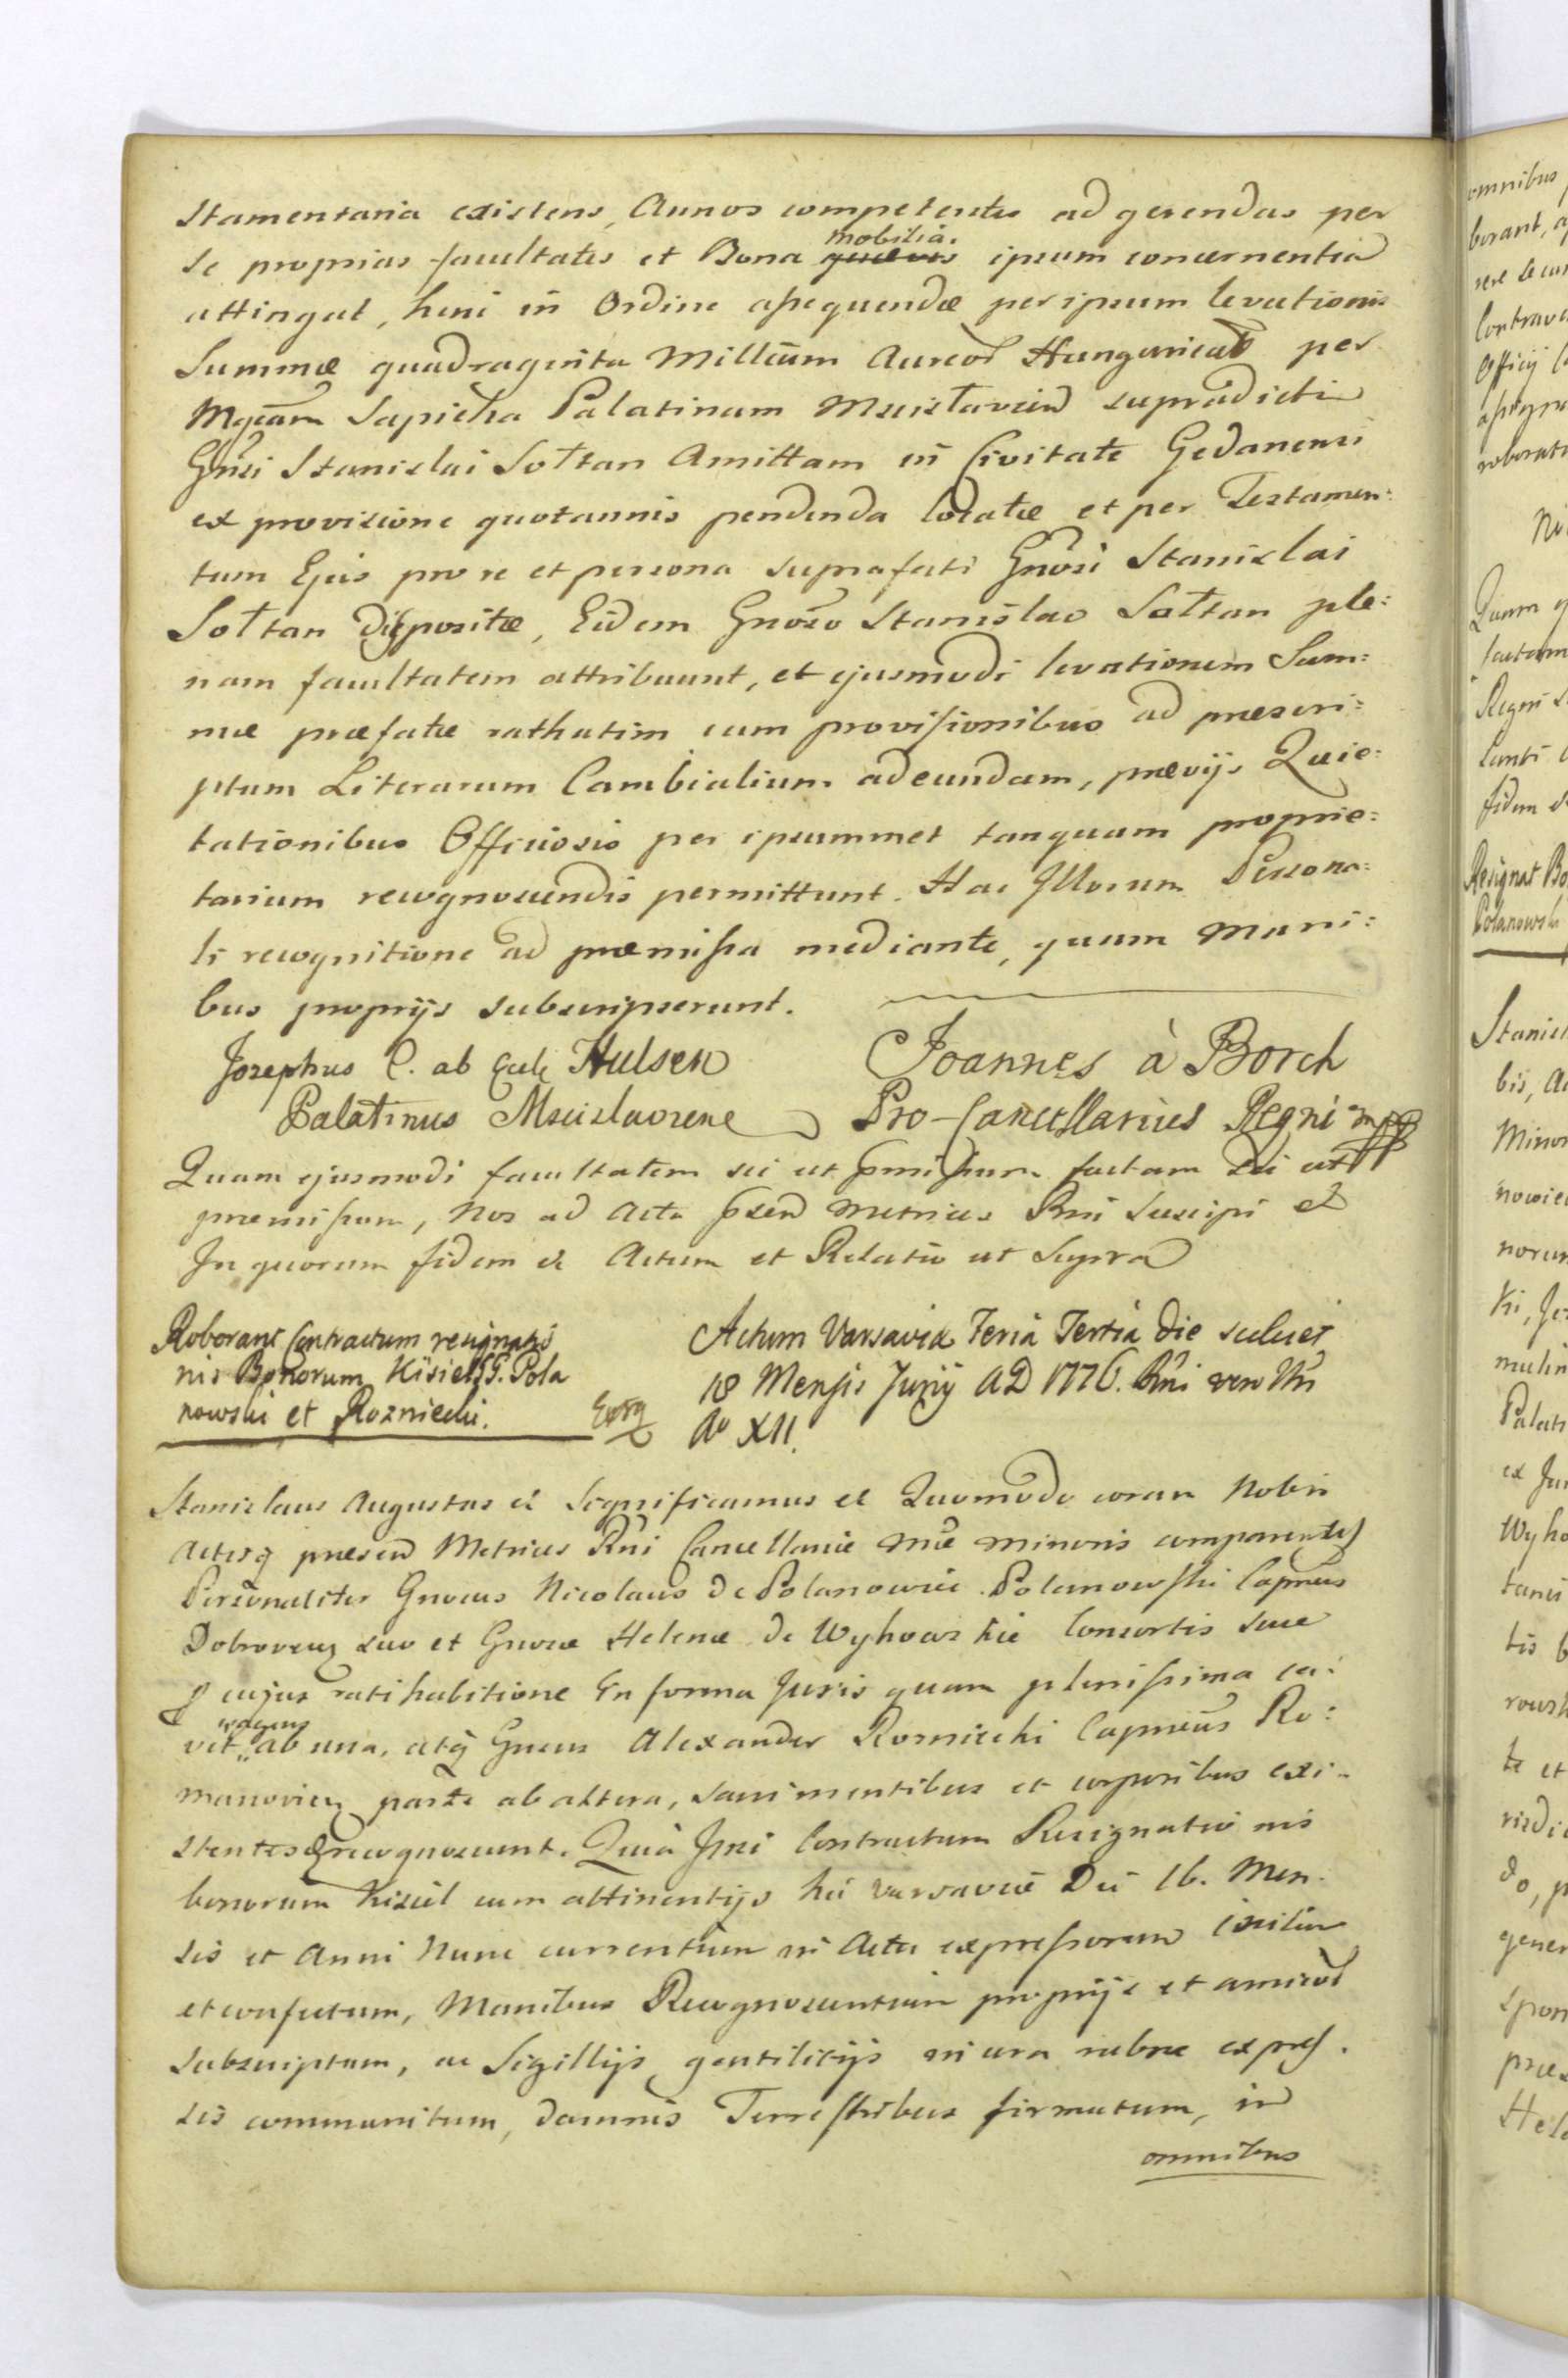 stamentaria existens, Annos competentes ad gerendas per
se proprias facultates et Bona mobilia ipsum concernentia
attingat, hinc in Ordine assequendæ per ipsum levationis
Summæ quadraginta Millium Aureor Hungarical per
Mgcam Sapieha Palatinam Mscislavien supradicti
Gnsi Stanislai Sołtan Amittam in Civitate Gedanensi
ex provisione quotannis pendenda locatæ et per Testamen:
tum Ejus pro re et persona suprafati Gnosi Stanislai
Sołtan dispositæ, Eidem Gnoso Stanislao Sołtan ple:
nam facultatem attribuunt, et ejusmodi levationem Sum:
mæ præfatæ rathatim cum provisionibus ad præscri:
ptum Literarum Cambialium adeundam, prævijs Quie:
tationibus Officiosis per ipsummet tanquam proprie:
tarium recognoscendis permittunt. Hac Illorum Persona:
li recognitione ad præmissa mediante, quam Mani:
bus proprijs subscripserunt.
Josephus C. ab Hulsen Joannes à Borch
Palatinus Mscislaviene Pro-Cancellarius Regni mpp
Quam ejusmodi facultatem sic ut pmissum factam sic ut
premissum, Nos ad Acta psen Metrices Rni Suscipi et
In quorum fidem & Actum et Relatio ut Supra
Roborant Contractum resignatio
nis Bonorum Kisiel GG. Pola
nowski et Rozniecki.
Actum Varsaviæ Feria Tertia die scilicet
18 Mensis Junij AD 1776. Rni vero Nri
Ao XII.
Stanislaus Augustus & Significamus & Quomodo coram Nobis
Actisq præsen Metrices Rni Cancellariæ mæ minoris comparentes
Personaliter Gnosus Nicolaus de Polanowice Polanowski Capneus
suo et Gnosæ Helenæ de Wyhowskie Consortis suæ
p cujus ratihabitione In forma Juris quam plenissima ca:
vet agens ab una, atq Gnsus Alexander Rozniecki Capneus Ro:
manovien parte ab altera, sani mentibus et corporibus exi-
stentes recognoverunt. Quià Ipsi Contractum Resignatio nis
bonorum Kisiel cum attinentijs hic Varsaviæ Die 16. Men-
sis et Anni Nunc currentium in Actu expressorum initum
et confectum, Manibus Recognoscentium proprijs et amicor
subscriptum, ac Sigillijs gentilitijs in cera rubra expres.
sis communitum, damnis Terrestribus firmatum, in
omnibus